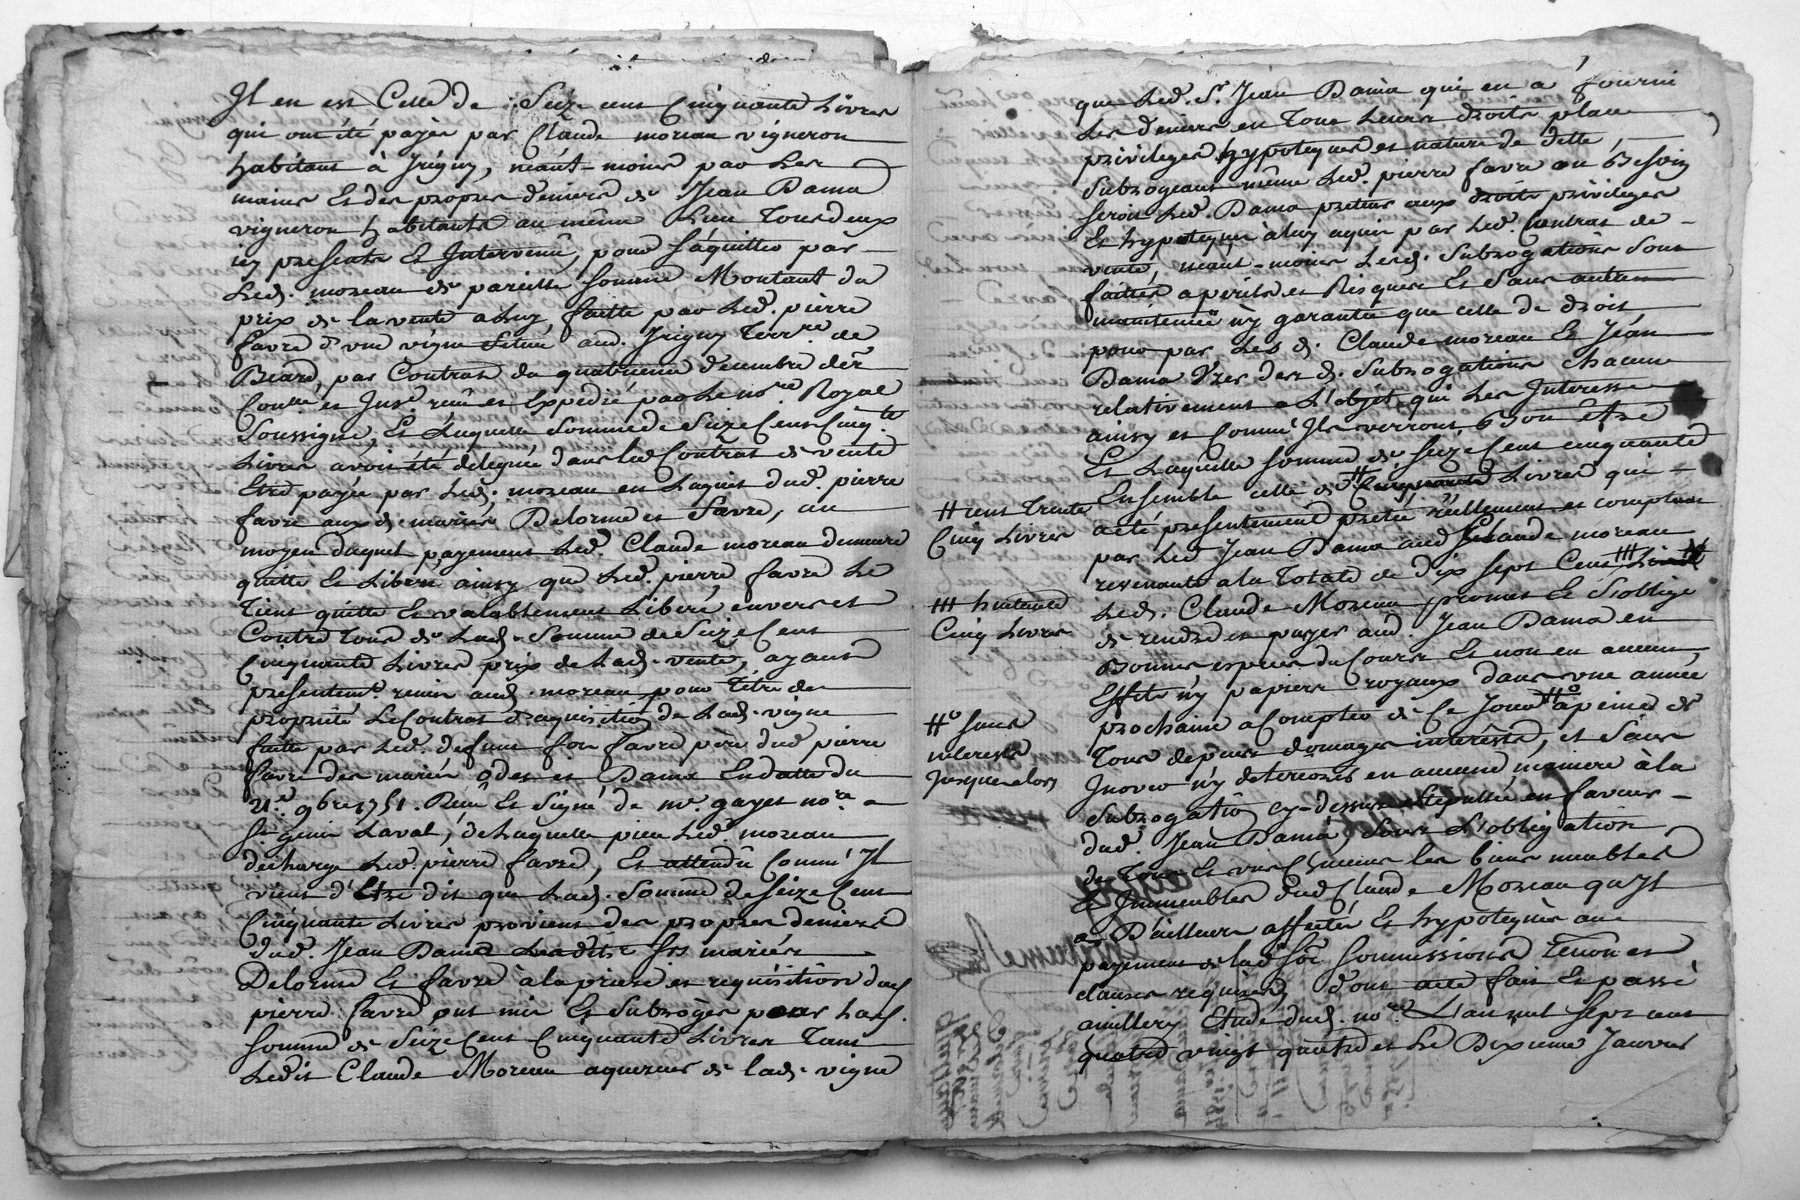 Il en est Celle de Seize cent Cinquante Livres
qui ont été payés par Claude moreau vigneron
habitant à Irigny, néant-moins par Les
mains Et des propres deniers de Jean Dama
vigneron habitants au même Lieu Tous deux
icy presents Et Intervenû, pour s'aquitter par
Led. moreau de pareille somme Montant du
prix de la vente a Luy faitte par Led. pierre
favre d'une vigne située aud. Irigny Terr.re de
Beard, par Contrat du quatrieme decembre der.
Con.lle et Ins.é reçu et Expedié par Le no.re Royal
Soussigné, Et Laquelle somme de Seize Cent Cinq.te
Livres avoit été deleguée dans led Contrat de vente
Etre payée par Led. moreau en Laquit dud. pierre
favre aux d. mariés Delorme et favre, au
moyen duquel payement Led. Claude moreau demeure
quitte Et Liberé ainsy que Led. pierre favre Le
Tient quitte Et valablement Liberé envers et
Contre Tous de Lad. Somme de Seize Cent
Cinquante Livres prix de Lad. vente, ayant
presentem.t remis aud. moreau pour Titre de
propriété Le Contrat d'aquisition de Lad. vigne
faitte par Led. defunt favre père dud pierre
favre des mariés odet et Dama En datte du
21.e 9bre 1751. Reçu Et Signé de m.e gayet no.re a
S.t genis Laval, de Laquelle piece Led moreau
décharge Led. pierre favre, Et attendû Comm' Il
vient d'Etre dit que Lad. Somme de Seize Cent
Cinquante Livres provient des propres deniers
dud. Jean Dama Lesdits mariés
Delorme Et favre à la priere et requisition dud
pierre favre ont mis Et subrogés pour Lad.
somme de Seize Cent Cinquante Livres Tant
Ledit Claude Moreau aquereur de lad. vigne
que Led. S.r Jean Dama qui en a fourni
Les deniers en Tous Leurs droits place
privileges hypoteques et nature de dette
Subrogeant même Led. pierre favre au Besoin
seroit Led. Dama preteur aux droits privileges
Et hypoteque a luy aquis par Led. Contrat de
vente, néant-moins Lesd. Subrogations sont
faittes a perils et Risques Et sans autre
maintenüe n'y garantie que celle de droit
pour par Les d. Claude moreau Et Jean
Dama Uzer des d. Subrogations chacun
relativement a L'objet qui Les Interesse
ainsy et Comm' Ils verront bon Etre
Et Laquelle somme de Seize Cent cinquante
Ensemble celle de # Cinquante Livres qui
# cent Trente
Cinq Livres
a été presentement pretée réellement et comptant
par Led Jean Dama aud Claude moreau
revenante a la Totale de dix sept Cent ### Livres
### huitante
Cinq Livres
Led. Claude Moreau promet Et S'oblige
de rendre et payer aud. Jean Dama en
Bonnes especes du Cours Et non en aucuns
Effets n'y papiers royaux dans une année
prochaine a Compter de Ce Jour #° a peine de
#° sans
interests
jusqu'alors
Tous depens domages interets, et sans
Inover n'y deteriorer en aucune maniere à la
Subrogation cy-dessus stipulée en faveur
dud. Jean Dama, sous L'obligation
de Tous Et uns Chacuns les biens meubles
Et Immeubles dud Claude Moreau qu'Il
a D'ailleurs affectés Et hypotequés au
payement de lad Soumissions renon et
clauses requises, Dont acte fait Et passé
aud Etude dud. no.re L'an mil sept cent
quatre vingt quatre et Le Dixieme Janvier